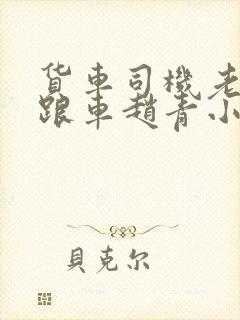 货车司機老
跟車趙青小
貝克尔